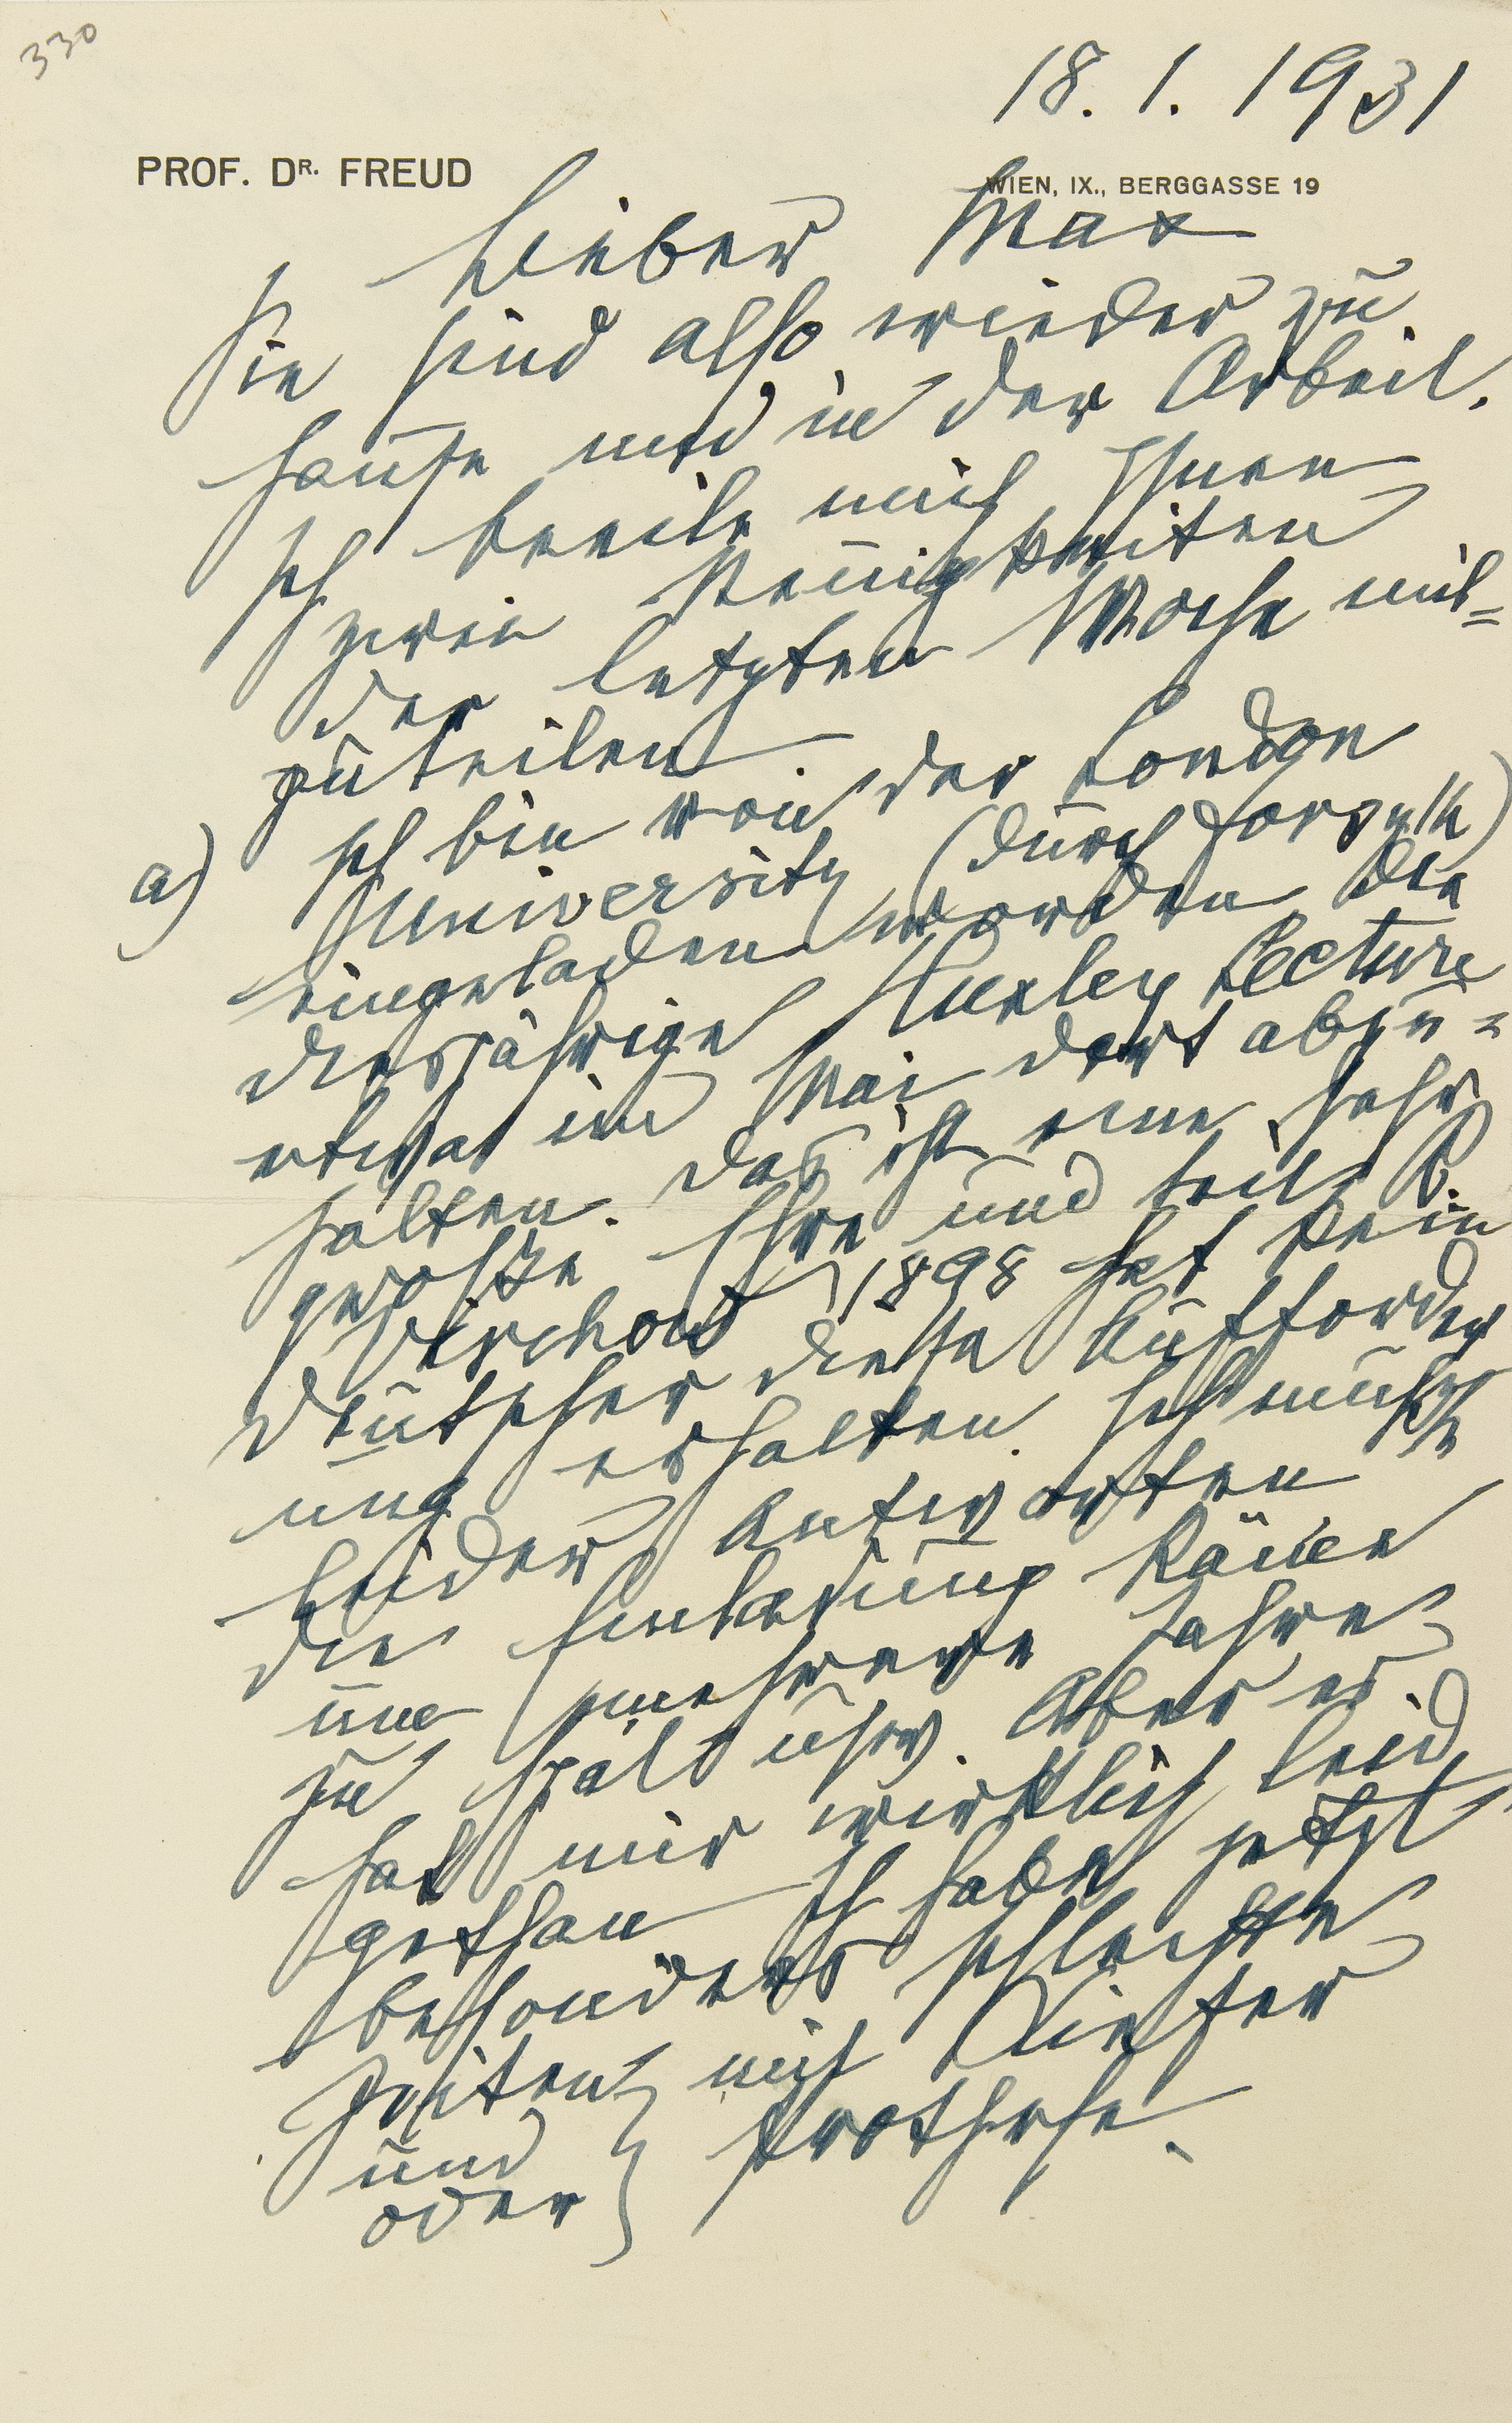 330
18. 1. 1931
PROF. DR. FREUD
WIEN, IX., BERGGASSE 19
Lieber Max
Sie sind also wieder zu
hause und in der Arbeit.
Ich beeile mich Ihnen
zwei Neuigkeiten
der letzten Woche mit=
zuteilen
a) Ich bin von der London
University (durch Forsyth)
eingeladen worden die
diesjährige Huxley Lecture
etwa im Mai dort abzu=
halten. Das ist eine sehr
große Ehre und seit R
Virchow 1898 hat kein
deutscher diese Aufforder
ung erhalten. Ich mußte
leider antworten
die Einladung käme
um mehrere Jahre
zu spät usw. Aber es
hat mir wirklich leid
gethan Ich habe jetzt
besonders schlechte
Zeiten mit Kiefer
und
oder } Prothese.